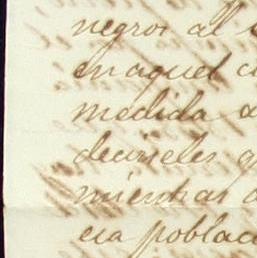 negros al
en aquel
medida
decirles
mientras
esa poblac